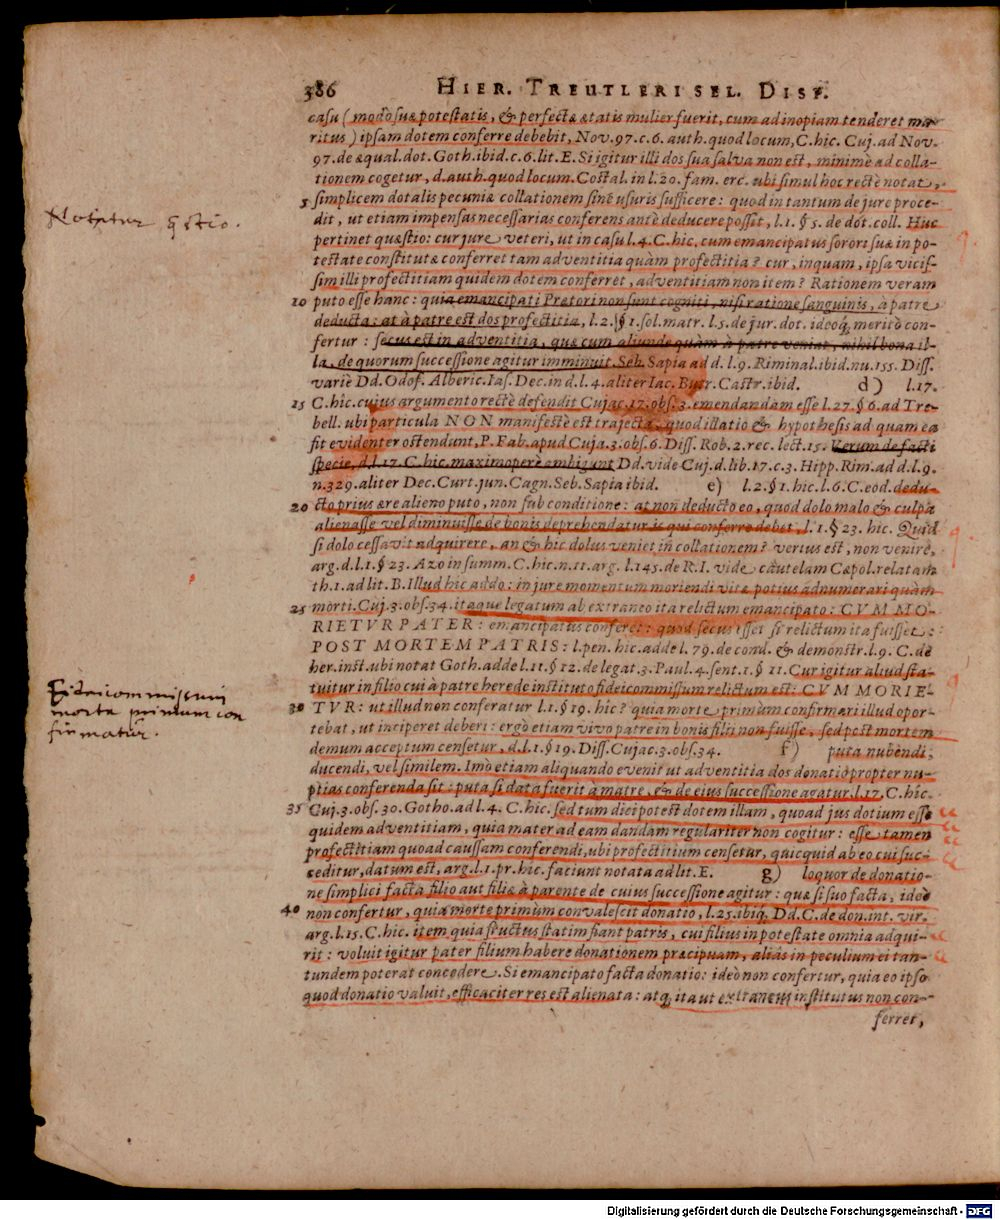 386 HIER. TREUTLERI SEL. DISP.
casu (modò suæ potestatis, & perfectæ ætatis mulier fuerit, cum ad inopiam tenderet ma-
ritus) ipsam dotem conferre debebit, Nov. 97. c. 6. auth. quod locum, C. hic. Cuj. ad Nov.
97. de æqual. dot. Goth. ibid. c. 6. lit. E. Si igitur illi dos sua salva non est, minimè ad colla-
tionem cogetur, d. auth. quod locum. Costal. in l. 20. fam. erc. ubi simul hoc rectè notat,
5 simplicem dotalis pecuniæ collationem sine usuris sufficere: quod in tantum de jure proce-
dit, ut etiam impensas necessarias conferens antè deducere possit, l. 1. §. 5. de dot. coll. Huc
Notatur qstio.
pertinet quæstio: cur jure veteri, ut in casu l. 4. C. hic. cum emancipatus sorori suæ in po-
testate constitutæ conferret tam adventitia quàm profectitia? cur, inquam, ipsa vicis-
sim illi profectitiam quidem dotem conferret, adventitiam non item? Rationem veram
10 puto esse hanc: quia emancipati Prætori non sunt cogniti, nisi ratione sanguinis, à patre
deducta: at à patre est dos profectitia, l. 2. § 1. sol. matr. l. 5. de jur. dot. ideoq; meritò con-
fertur: secus est in adventitia, quæ cum aliunde quàm à patre veniat, nihil bona il-
la, de quorum successione agitur imminuit. Seb. Sapia ad d. l. 9. Riminal. ibid. nu. 155. Diss.
variè Dd. Odof. Alberic. Ias. Dec. in d. l. 4. aliter Iac. Butr. Castr. ibid. d) l. 17.
15 C. hic. cujus argumento rectè defendit Cujac. 17. obs. 3. emendandam esse l. 27. § 6. ad Tre-
bell. ubi particula NON manifestè est trajecta, quod illatio & hypothesis ad quam ea
fit evidenter ostendunt, P. Fab. apud Cuja. 3. obs. 6. Diss. Rob. 2. rec. lect. 15. Verum de facti
specie, d. l. 17. C. hic. maximoperè ambigunt Dd. vide Cuj. d. lib. 17. c. 3. Hipp. Rim. ad d. l. 9.
n. 329. aliter Dec. Curt. jun. Cagn. Seb. Sapia ibid. e) l. 2. § 1. hic. l. 6. C. eod. dedu-
20 cto prius ære alieno puto, non sub conditione: at non deducto eo, quod dolo malo & culpa
alienasse vel diminuisse de bonis deprehendatur is qui conferre debet, l. 1. § 23. hic. Quid
si dolo cessavit adquirere, an & hic dolus veniet in collationem? verius est, non venire,
arg. d. l. 1. § 23. Azo in summ. C. hic. n. 11. arg. l. 145. de R. I. vide cautelam Cæpol. relatam
th. 1. ad lit. B. Illud hic addo: in jure momentum moriendi vitæ potius adnumerari quàm
25 morti. Cuj. 3. obs. 34. itaque legatum ab extraneo ita relictum emancipato: CVM MO-
RIETVR PATER: emancipatus conferet: quod secus esset si relictum ita fuisset:
POST MORTEM PATRIS: l. pen. hic. adde l. 79. de cond. & demonstr. l. 9. C. de
her. inst. ubi notat Goth. adde l. 11. § 12. de legat. 3. Paul. 4. sent. 1. § 11. Cur igitur aliud sta-
Fideicommissum
morte primum con
firmatur.
tuitur in filio cui à patre herede instituto fideicommissum relictum est: CVM MORIE-
30 TVR: ut illud non conferatur l. 1. § 19. hic? quia morte primùm confirmari illud opor-
tebat, ut inciperet deberi: ergò etiam vivo patre in bonis filii non fuisse, sed post mortem
demum acceptum censetur, d. l. 1. § 19. Diss. Cujac. 3. obs. 34. f) puta nubendi,
ducendi, vel similem. Imò etiam aliquando evenit ut adventitia dos donatio propter nu-
ptias conferenda sit: puta si data fuerit à matre, & de ejus successione agatur. l. 17. C. hic.
35 Cuj. 3. obs. 30. Gotho. ad l. 4. C. hic. sed tum dici potest dotem illam, quoad jus dotium esse
quidem adventitiam, quia mater ad eam dandam regulariter non cogitur: esse tamen
profectitiam quoad caussam conferendi, ubi profectitium censetur, quicquid ab eo cui suc-
ceditur, datum est, arg. l. 1. pr. hic. faciunt notata ad lit. E. g) loquor de donatio-
ne simplici facta filio aut filiæ à parente de cuius successione agitur: quæ si suo facta, ideò
40 non confertur, quia morte primùm convalescit donatio, l. 25. ibiq; Dd. C. de don. int. vir.
arg. l. 15. C. hic. item quia fructus statim fiant patris, cui filius in potestate omnia adqui-
rit: voluit igitur pater filium habere donationem præcipuam, aliàs in peculium ei tan-
tundem poterat concedere. Si emancipato facta donatio: ideò non confertur, quia eo ipso
quod donatio valuit, efficaciter res est alienata: atq; ita ut extraneus institutus non con-
ferret,
Digitalisierung gefördert durch die Deutsche Forschungsgemeinschaft - DFG